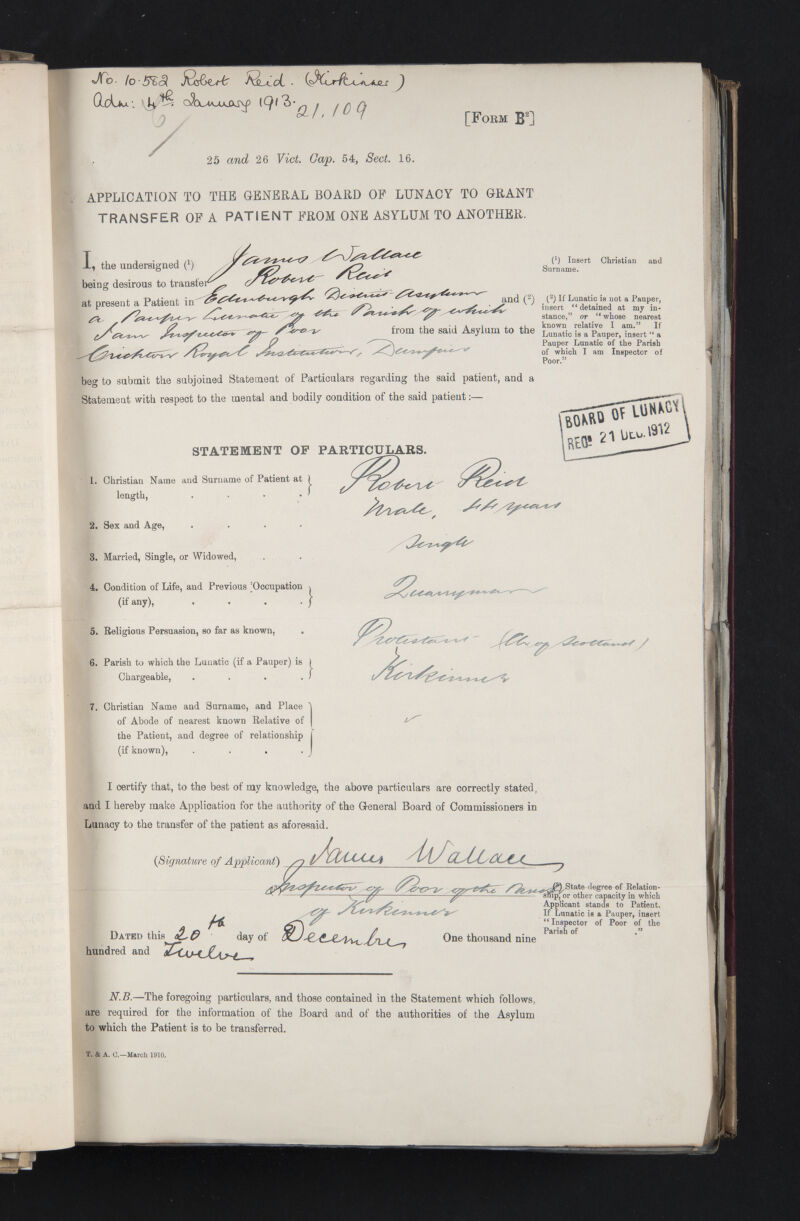 No. 10.582 Robert Reid. (Kirkinner)
Adm: 4th January 1913.
21,109
[Form B²]
25 and 26 Vict. Cap. 54, Sect. 16.
APPLICATION TO THE GENERAL BOARD OF LUNACY TO GRANT
TRANSFER OF A PATIENT FROM ONE ASYLUM TO ANOTHER.
I, the undersigned (1) James Wallace
being desirous to transfer Robert Reid
at present a Patient in Edinburgh District Asylum and (2)
a Pauper Lunatic of the Parish of which
I am Inspector of Poor from the said Asylum to the
Crichton Royal Institution, Dumfries
beg to submit the subjoined Statement of Particulars regarding the said patient, and a
Statement with respect to the mental and bodily condition of the said patient:—
(1) Insert Christian and
Surname.
(2) If Lunatic is not a Pauper,
insert "detained at my in-
stance," or "whose nearest
known relative I am." If
Lunatic is a Pauper, insert "a
Pauper Lunatic of the Parish
of which I am Inspector of
Poor."
BOARD OF LUNACY
RECD. 21 DEC. 1912
STATEMENT OF PARTICULARS.
1. Christian Name and Surname of Patient at
length, Robert Reid
2. Sex and Age, Male, 44 years
3. Married, Single, or Widowed, Single
4. Condition of Life, and Previous Occupation
(if any), Quarryman
5. Religious Persuasion, so far as known, Protestant (Ch of Scotland)
6. Parish to which the Lunatic (if a Pauper) is
Chargeable, Kirkinner
7. Christian Name and Surname, and Place
of Abode of nearest known Relative of
the Patient, and degree of relationship
(if known),
I certify that, to the best of my knowledge, the above particulars are correctly stated,
and I hereby make Application for the authority of the General Board of Commissioners in
Lunacy to the transfer of the patient as aforesaid.
(Signature of Applicant) James Wallace
Inspector of Poor of the Parish
of Kirkinner
(3) State degree of Relation-
ship, or other capacity in which
Applicant stands to Patient.
If Lunatic is a Pauper, insert
"Inspector of Poor of the
Parish of ."
Dated this 20th day of December One thousand nine
hundred and Twelve
N.B.—The foregoing particulars, and those contained in the Statement which follows,
are required for the information of the Board and of the authorities of the Asylum
to which the Patient is to be transferred.
T. & A. C.—March 1910.